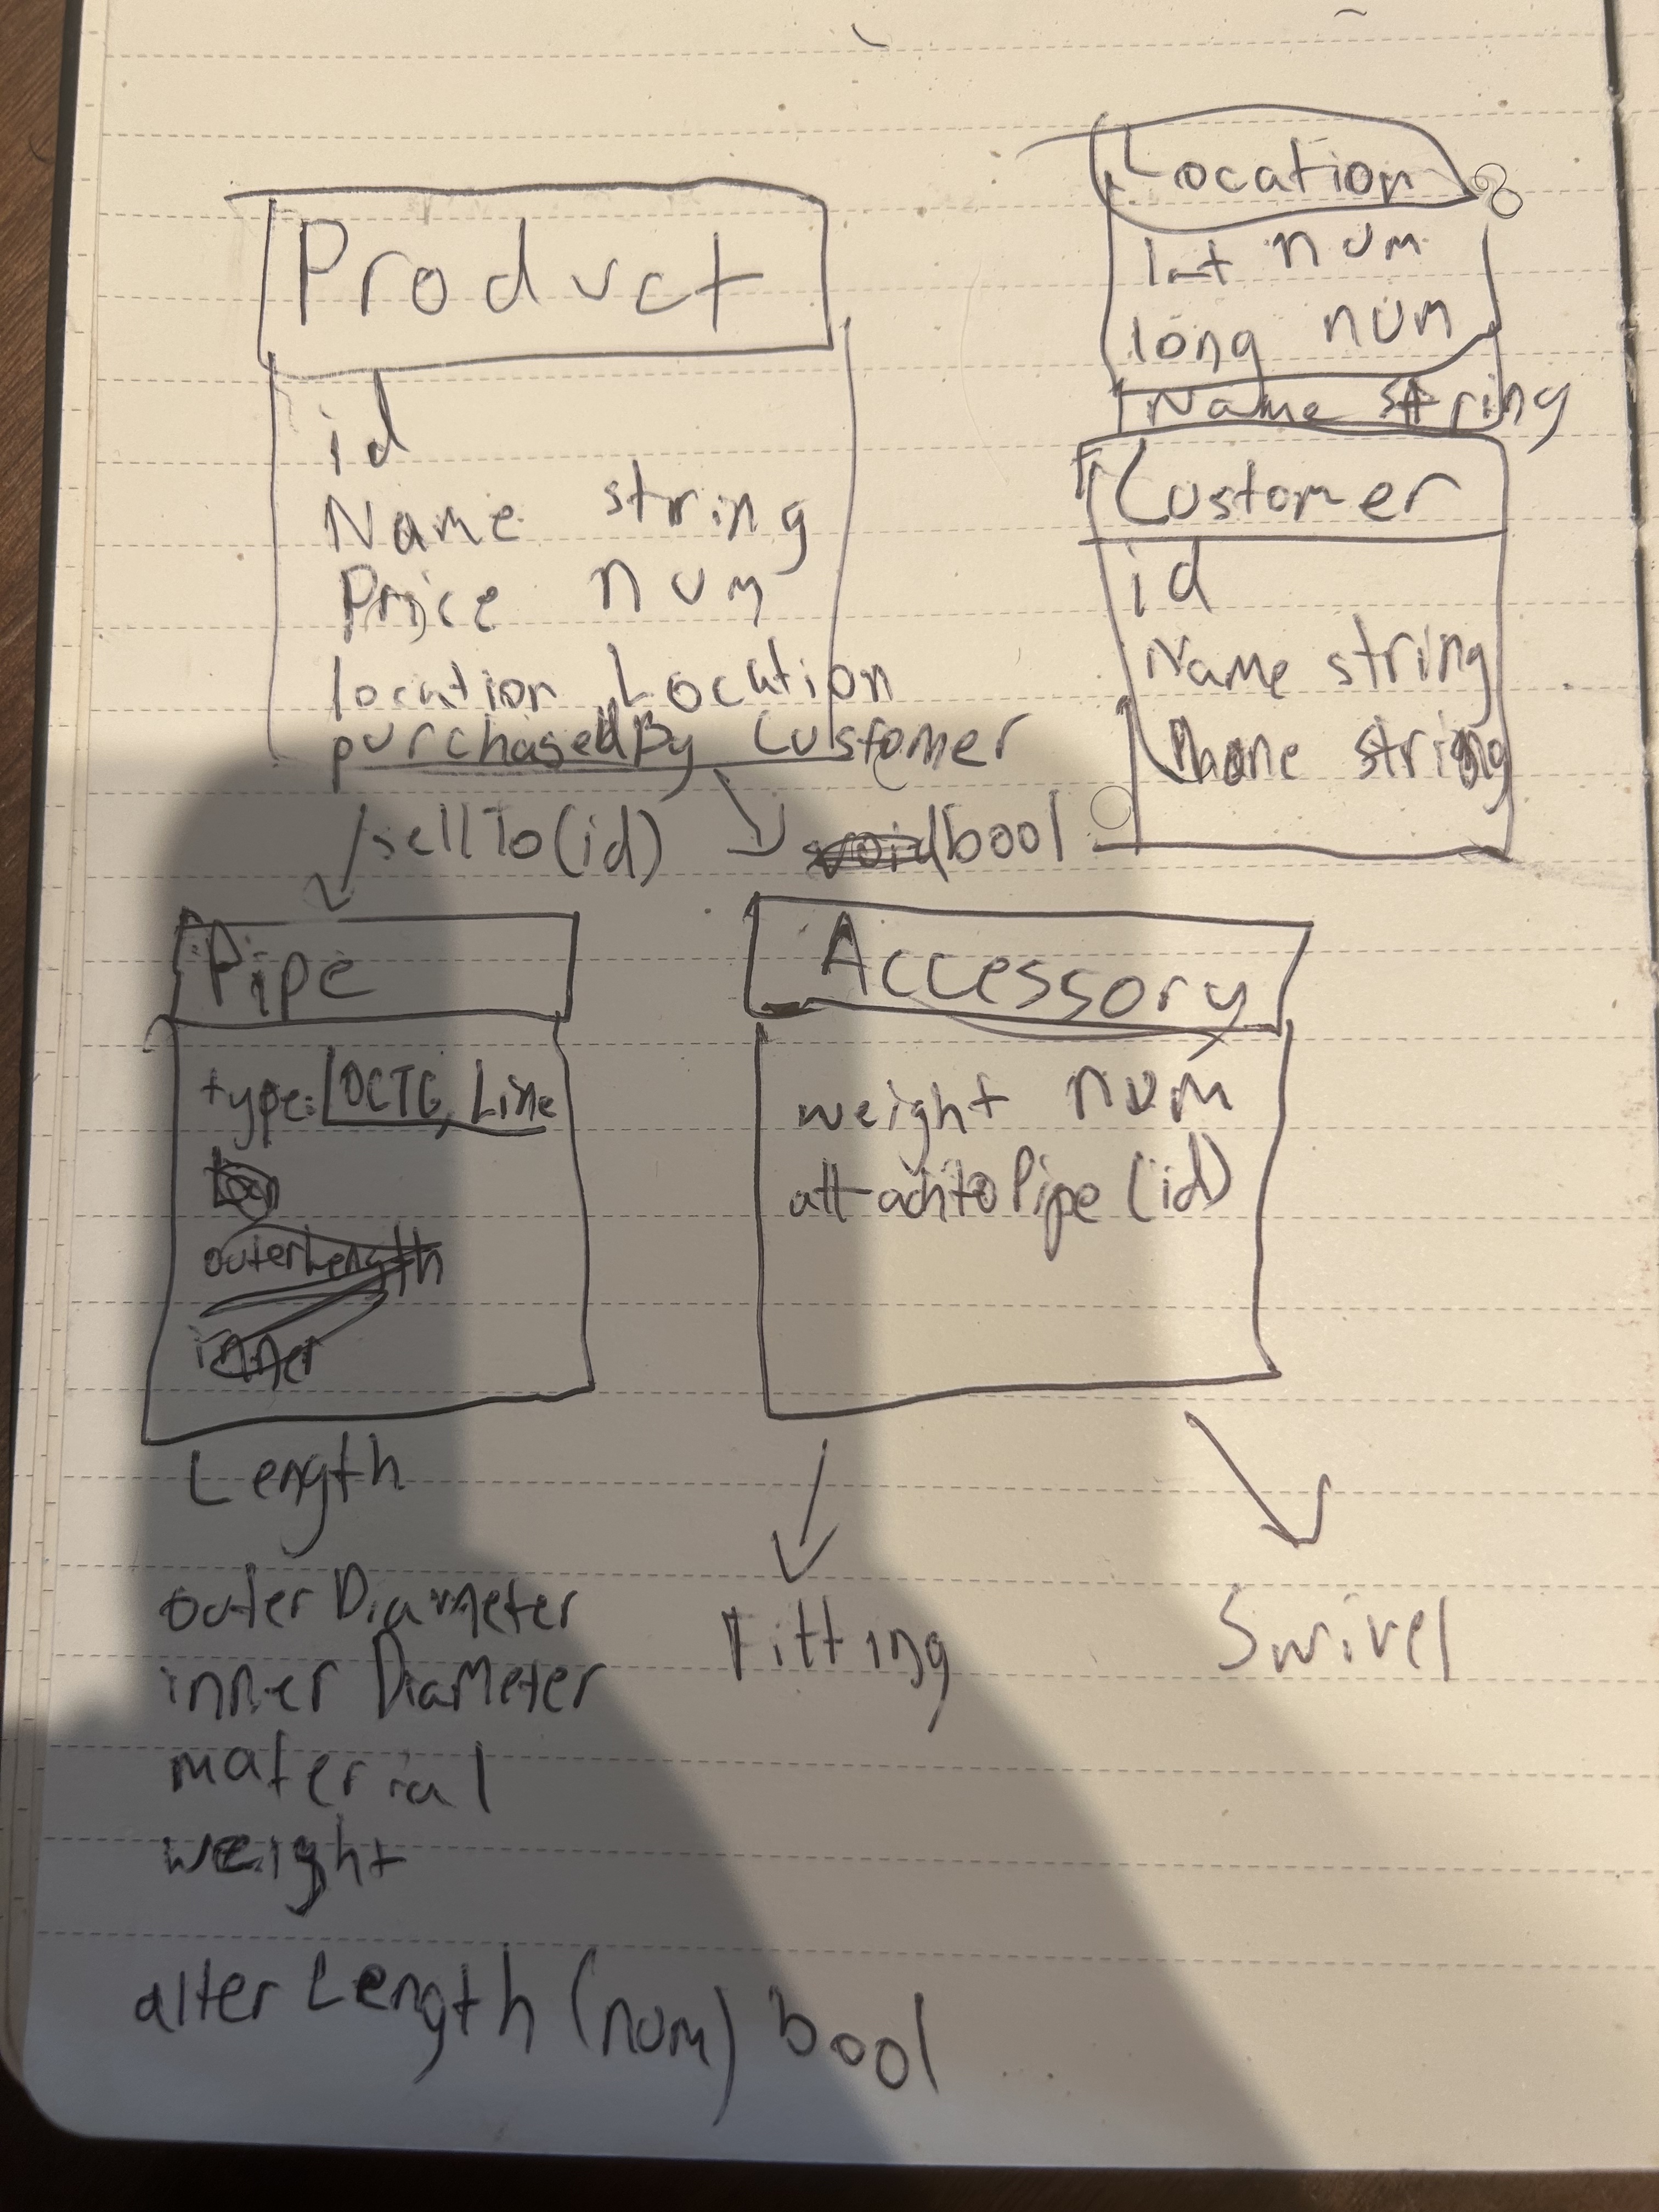 Product
id
Name string
Price num
location Location
purchasedBy Customer
sellTo(id) void bool
Location
lat num
long num
Name string
Customer
id
Name string
Phone string
Pipe
type: [OCTG, Line
outerLength
inner
Length
outerDiameter
innerDiameter
material
weight
alterLength(num) bool
Accessory
weight num
attachtoPipe(id)
Fitting
Swivel